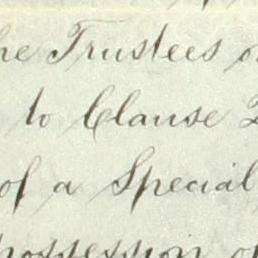 he Trustees
to Clause
of a Special
possession of